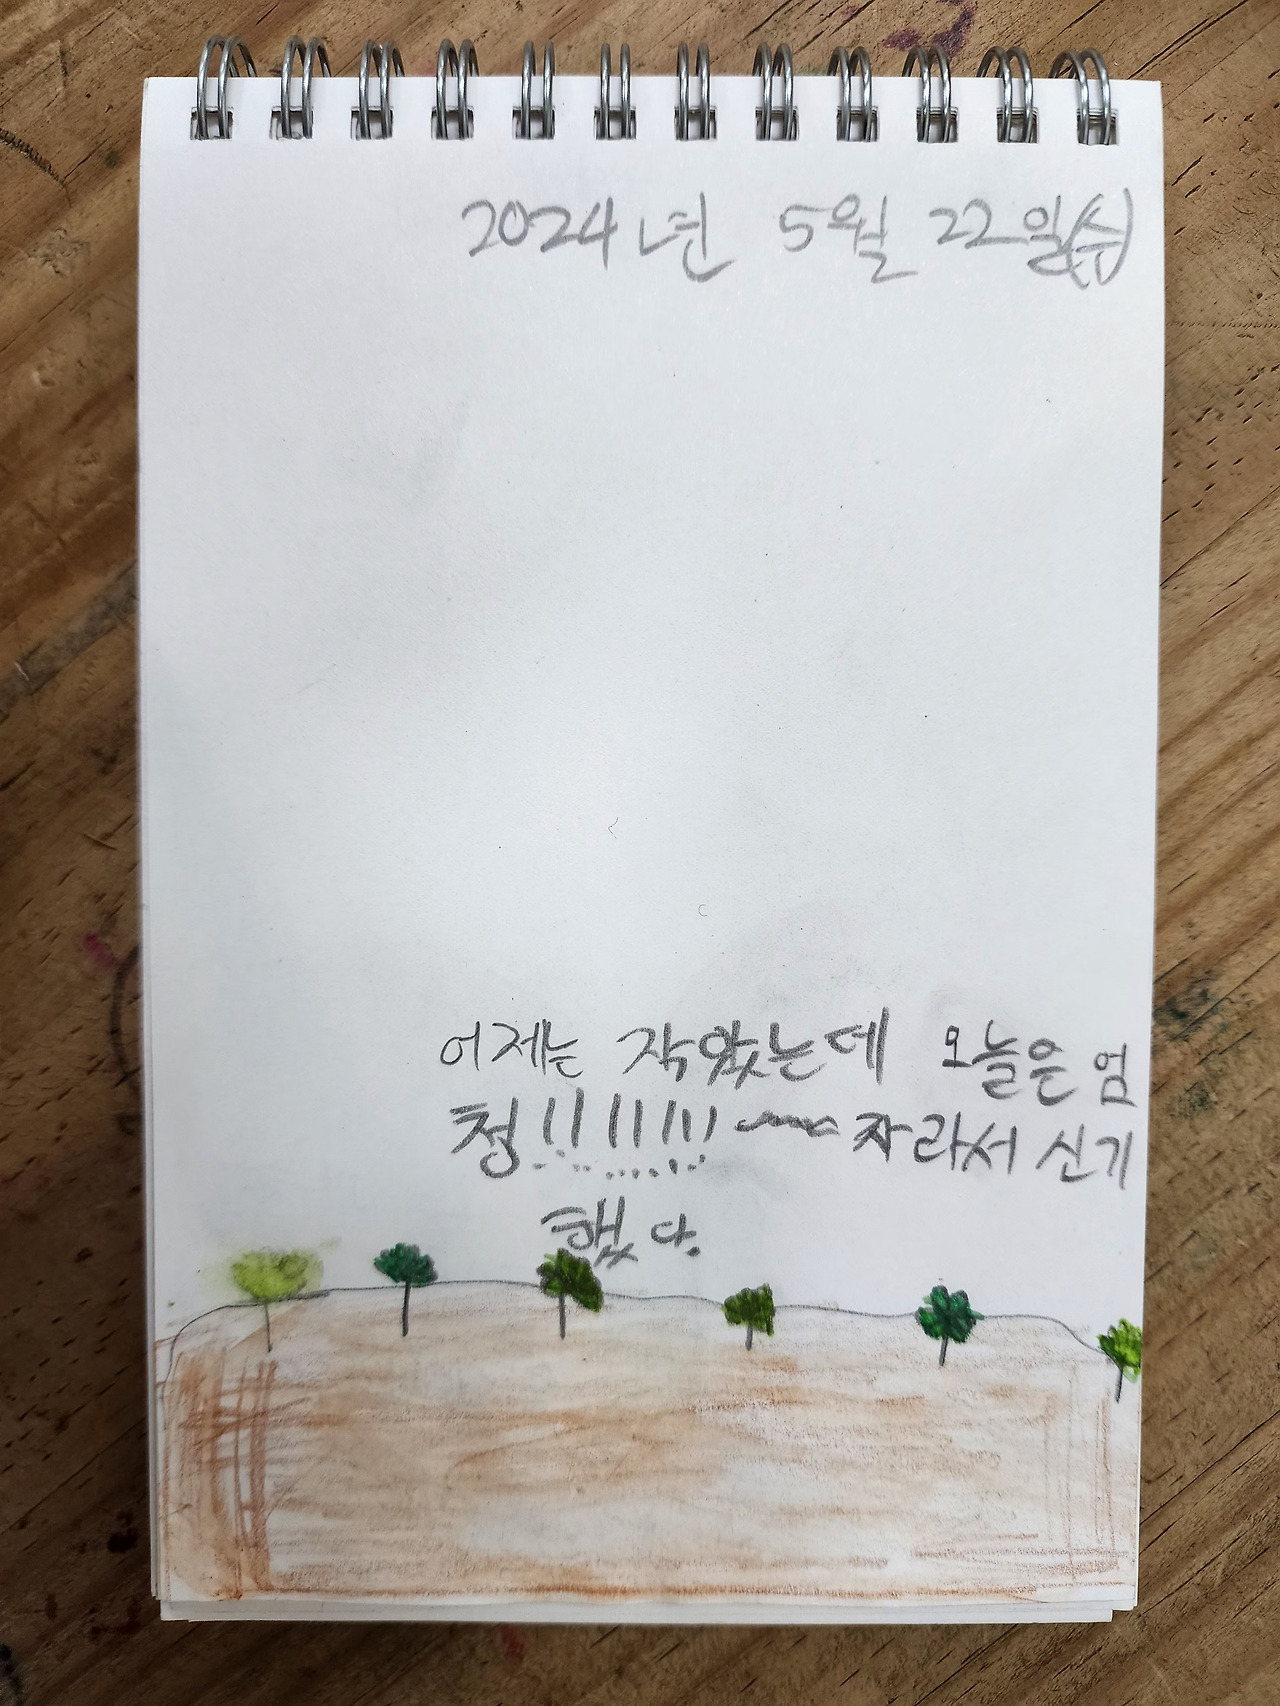 2024년 5월 22일(수)
어제는 작았는데 오늘은 엄
청!!!!!!! 자라서 신기
했다.